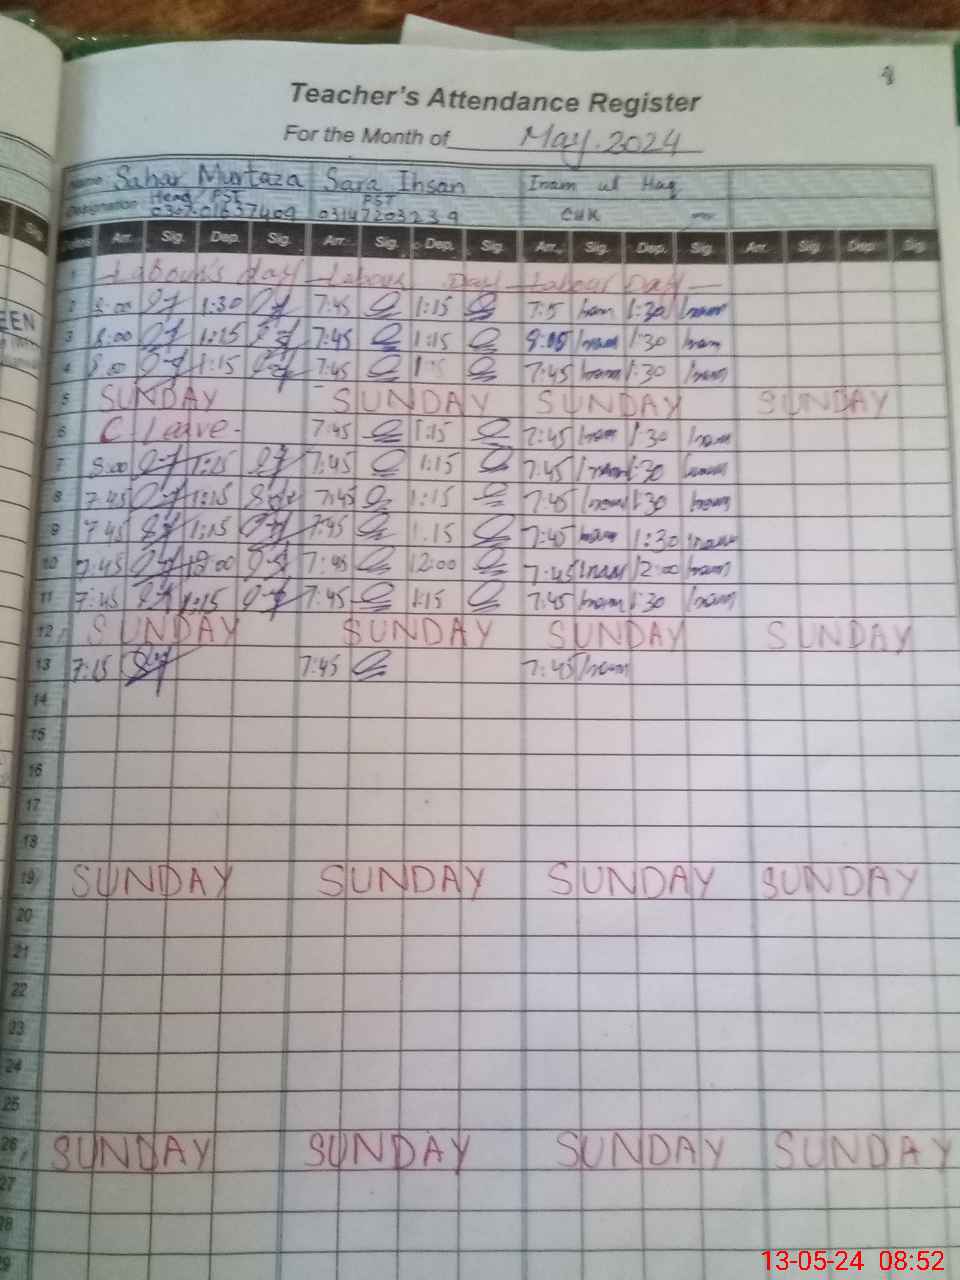 8
Teacher's Attendance Register
For the Month of May. 2024
Name Sahar Murtaza Sara Ihsan Inam ul Haq
Designation Head PST PST CHK
03147203239
Arr. Sig. Dep. Sig. Arr. Sig. Dep. Sig. Arr. Sig. Dep. Sig. Arr. Sig. Dep. Sig.
1 Labour's day Labour Day Labour Day
2 8:00 1:30 7:45 1:15 Inam 1:30 Inam
3 8:00 1:15 7:45 1:15 Inam 1:30 Inam
4 1:15 7:45 7:45 Inam 1:30 Inam
5 SUNDAY SUNDAY SUNDAY SUNDAY
6 C Leave- 7:45 1:15 7:45 Inam 1:30 Inam
7 8:00 1:15 7:45 1:15 7:45 Inam 1:30 Inam
8 7:45 1:15 7:45 1:15 7:45 Inam 1:30 Inam
9 7:45 1:15 7:45 1.15 7:45 Inam 1:30 Inam
10 7:45 7:45 12:00 7:45 Inam 12:00 Inam
11 7:45 1:15 7:45 1:15 7:45 Inam 1:30 Inam
12 SUNDAY SUNDAY SUNDAY SUNDAY
13 7:15 7:45 7:45 Inam
14
15
16
17
18
19 SUNDAY SUNDAY SUNDAY SUNDAY
20
21
22
23
24
25
26 SUNDAY SUNDAY SUNDAY SUNDAY
27
28
29
EEN
13-05-24 08:52